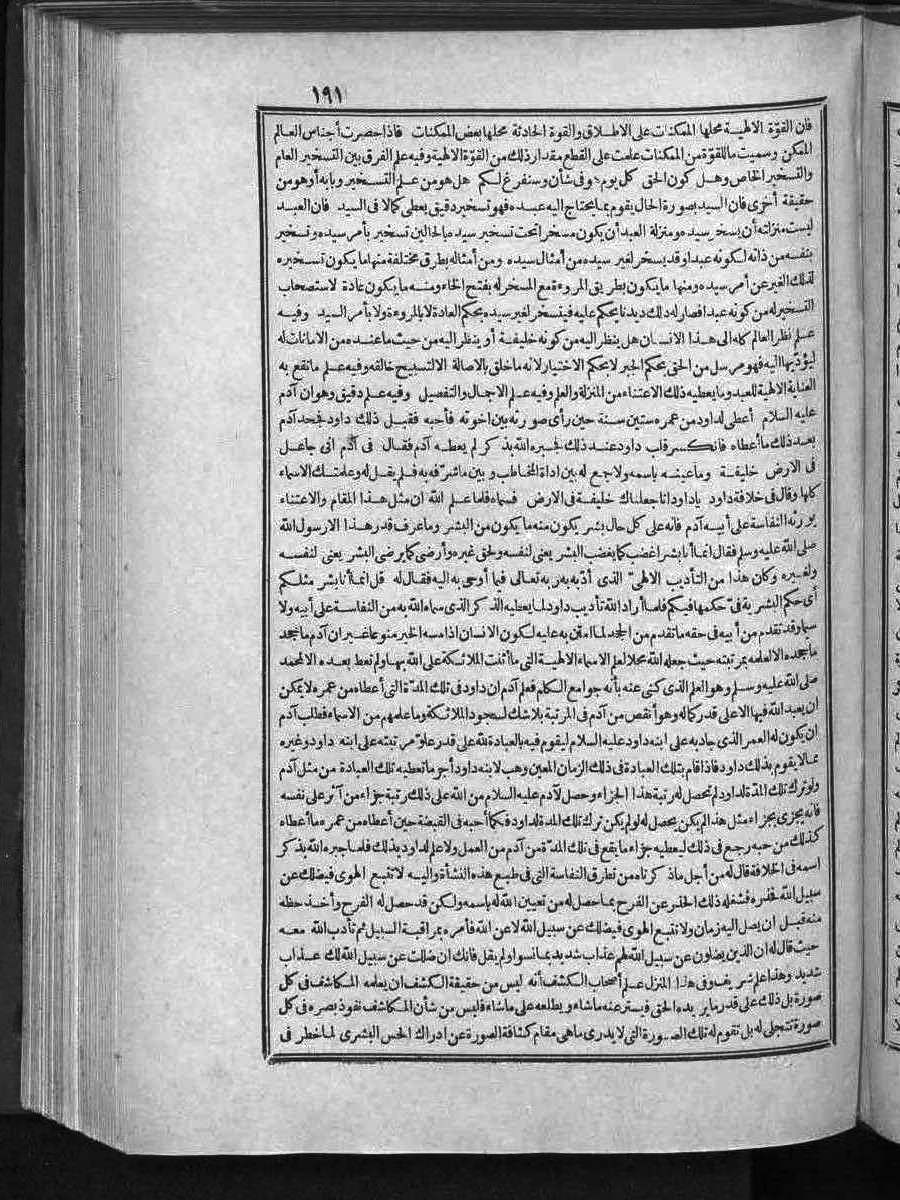 ١٩١
فان القوّة الالهية محلها الممكنات على الاطلاق والقوة الحادثة محلها بعض الممكنات فاذا حصرت أجناس العالم
الممكن وسميت ما للقوّة من الممكنات علمت على القطع مقدار ذلك من القوّة الالهية وفيه علم الفرق بين التسخير العام
والتسخير الخاص وهل كون الحق كل يوم هو فى شأن وسنفرغ لكم هل هو من علم التسخير وبابه أو هو من
حقيقة أخرى فان السيد بصورة الحال يقوم بما يحتاج اليه عبده فهو تسخير دقيق يعطى كمالا فى السيد فان العبد
ليست منزلته أن يسخر سيده ومنزلة العبد أن يكون مسخرا تحت تسخير سيده بالحالين تسخير بأمر سيده وتسخير
بنفسه من ذاته لكونه عبدا وقد يسخر لغير سيده من أمثال سيده ومن أمثاله بطرق مختلفة منها ما يكون تسخيره
لذلك الغير عن أمر سيده ومنها ما يكون بطريق المروءة مع المسخر له بفتح الخاء ومنه ما يكون عادة لاستصحاب
التسخير له من كونه عبدا فصار له ذلك ديدنا يحكم عليه فيتسخر لغير سيده بحكم العادة لا بالمروءة ولا بأمر السيد وفيه
علم نظر العالم كله الى هذا الانسان هل ينظر اليه من كونه خليفة أو ينظر اليه من حيث ما عنده من الامانات له
ليؤدّيها اليه فهو مرسل من الحق بحكم الجبر لا بحكم الاختيار لانه ما خلق بالاصالة الا لتسبيح خالقه وفيه علم ما تقع به
العناية الالهية للعبد وما يعطيه ذلك الاعتناء من المنزلة والعلم وفيه علم الاجمال والتفصيل وفيه علم دقيق وهو ان آدم
عليه السلام أعطى لداود من عمره ستين سنة حين رأى صورته بين اخوته فأحبه فقبل ذلك داود فجحد آدم
بعد ذلك ما أعطاه فانكسر قلب داود عند ذلك فجبره الله بذكر لم يعطه آدم فقال فى آدم انى جاعل
فى الارض خليفة وما عينه باسمه ولا جمع له بين اداة المخاطب وبين ما شرّفه به فلم يقل له وعلمتك الاسماء
كلها وقال فى خلافة داود ياداود انا جعلناك خليفة فى الارض فسماه فلما علم الله ان مثل هذا المقام والاعتناء
يورثه النفاسة على أبيه آدم فانه على كل حال بشر يكون منه ما يكون من البشر وما عرف قدر هذا الا رسول الله
صلى الله عليه وسلم فقال انما أنا بشر أغضب كما يغضب البشر يعنى لنفسه ولحق غيره وأرضى كما يرضى البشر يعنى لنفسه
ولغيره وكان هذا من التأديب الالهىّ الذى أدّبه به ربه تعالى فيما أوحى به اليه فقال له قل انما أنا بشر مثلكم
أى حكم البشرية فىّ حكمها فيكم فلما أراد الله تأديب داود لما يعطيه الذكر الذى سماه الله به من النفاسة على أبيه ولا
سيما وقد تقدم من أبيه فى حقه ما تقدم من الجحد لما امتن به عليه لكون الانسان اذا مسه الخير منوعا غير ان آدم ما جحد
ما جحده الا لعلمه بمرتبته حيث جعله الله محلا لعلم الاسماء الالهية التى ما أثنت الملائكة على الله بها ولم تعط بعده الا لمحمد
صلى الله عليه وسلم وهو العلم الذى كنى عنه بأنه جوامع الكلم فعلم آدم ان داود فى تلك المدّة التى أعطاه من عمره لا يمكن
ان يعبد الله فيها الا على قدر كماله وهو أنقص من آدم فى المرتبة بلا شك لسجود الملائكة وما علمهم من الاسماء فطلب آدم
ان يكون له العمر الذى جاد به على ابنه داود عليه السلام ليقوم فيه بالعبادة لله على قدر علوّ مرتبته على ابنه داود وغيره
مما لا يقوم بذلك داود فاذا قام بتلك العبادة فى ذلك الزمان المعين وهب لابنه داود أجر ما تعطيه تلك العبادة من مثل آدم
ولو ترك تلك المدّة لداود لم تحصل له رتبة هذا الجزاء وحصل لآدم عليه السلام من الله على ذلك رتبة جزاء من آثر على نفسه
فانه يجزى بجزاء مثل هذا لم يكن يحصل له لو لم يكن ترك تلك المدة لداود فكما أحبه فى القبضة حين أعطاه من عمره ما أعطاه
كذلك من حبه رجع فى ذلك ليعطيه جزاء ما يقع فى تلك المدّة من آدم من العمل ولا علم لداود بذلك فلما جبره الله بذكر
اسمه فى الخلافة قال له من أجل ما ذكرناه من تطرق النفاسة التى فى طبع هذه النشأة واليه لا تتبع الهوى فيضلك عن
سبيل الله فحذره فشغله ذلك الحذر عن الفرح بما حصل له من تعيين الله له باسمه ولكن قد حصل له الفرح وأخذ حظه
منه قبل ان يصل اليه زمان ولا تتبع الهوى فيضلك عن سبيل الله لا عن الله فأمره بمراقبة السبيل ثم تأدب الله معه
حيث قال له ان الذين يضلون عن سبيل الله لهم عذاب شديد بما نسوا ولم يقل فانك ان ضللت عن سبيل الله لك عذاب
شديد وهذا علم شريف وفى هذا المنزل علم أصحاب الكشف أنه ليس من حقيقة الكشف ان يعلمه المكاشف فى كل
صورة بل ذلك على قدر ما يريده الحق فيستر عنه ما شاء ويطلعه على ما شاء فليس من شأن المكاشف نفوذ بصره فى كل
صورة تتجلى له بل تقوم له تلك الصورة التى لا يدرى ما هى مقام كثافة الصورة عن ادراك الحس البشرى لما خطر فى